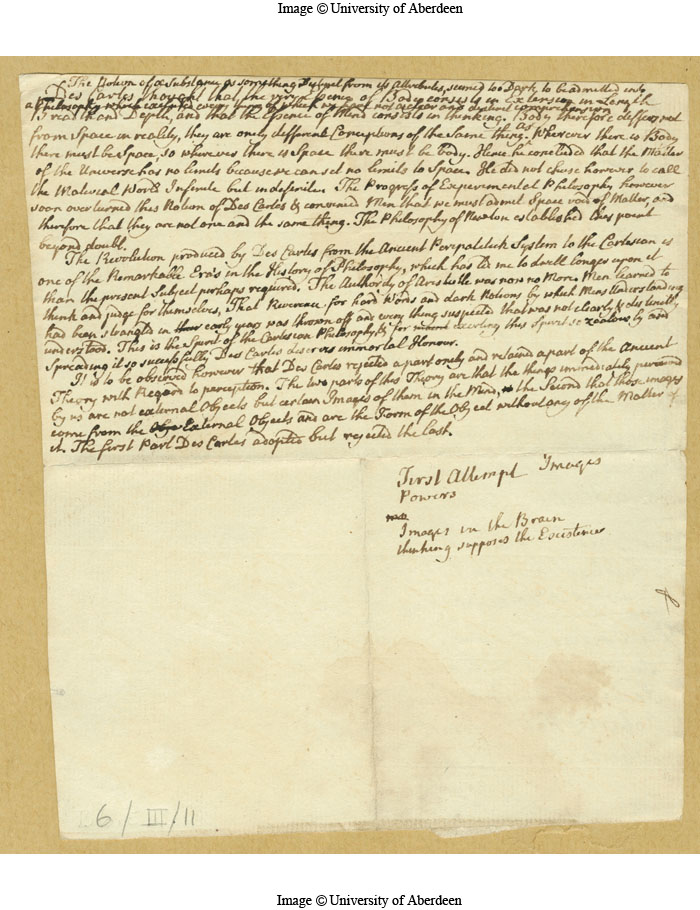 Image © University of Aberdeen
The Notion of a Substance as something Distinct from its Attributes, seemed too Dark to be admitted into
a Philosophy which
Des Cartes thought that the very being of Body consists in Extension in Length
Breadth and Depth, and that the Essence of Mind consists in thinking. Body therefore differs not
from Space in reality, they are onely different Conceptions of the same thing. As Wherever there is Body
there must be Space so wherever there is Space there must be body. Hence he concluded that the Matter
of the Universe has no limits because we can set no limits to Space. He did not chuse however to call
the Material World Infinite but indefinite. The Progress of Experimental Philosophy however
soon overturned this Notion of Des Cartes & convinced Men that we must admit Space void of Matter, and
therefore that they are not one and the same thing. The Philosophy of Newton established this point
beyond doubt.
The Revolution produced by Des Cartes from the Ancient Peripatetick System to the Cartesian is
one of the Remarkable Era's in the History of Philosophy, which has led me to dwell longer upon it
than the present Subject perhaps required. The Authority of Aristotle was now no More, Men learned to
think and judge for themselves, That Reverence for hard Words and dark Notions by which Mens Understanding
had been strangled in their early years was thrown off and every thing suspected that was not clearly & distinctly
understood. This is the Spirit of the Cartesian Philosophy, & for exerting this Spirit so zealously and
Spreading it so successfully Des Cartes deserves immortal Honour.
It is to be observed however that Des Cartes rejected a part onely and retaind a part of the Ancient
Theory with Regard to perception. The two parts of this Theory are that the things immediately perceived
by us are not external Objects but certain Images of them in the Mind, the Second that those images
come from the External Objects and are the Form of the Object without any of the Matter of
it. The first Part Des Cartes adopted but rejected the last.
First Attempt Images
Powers
Images in the Brain
thinking supposes the Existence
6/III/11
Image © University of Aberdeen